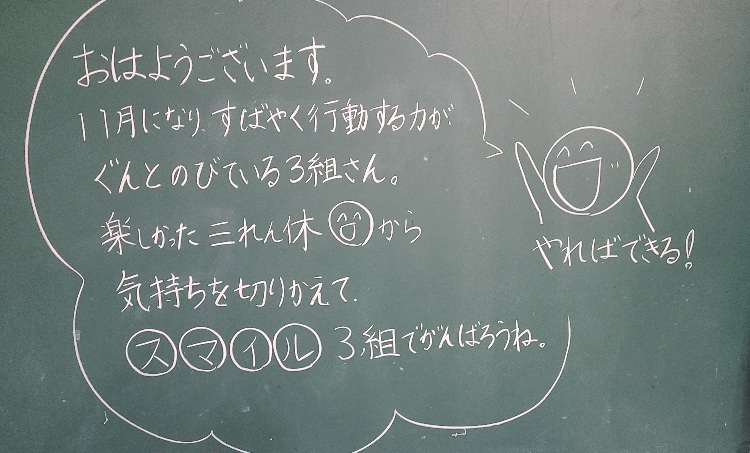 おはようございます。
11月になり、すばやく行動する力が
ぐんとのびている3組さん。
楽しかった三れん休から
気持ちを切りかえて、
スマイル3組でがんばろうね。
やればできる!